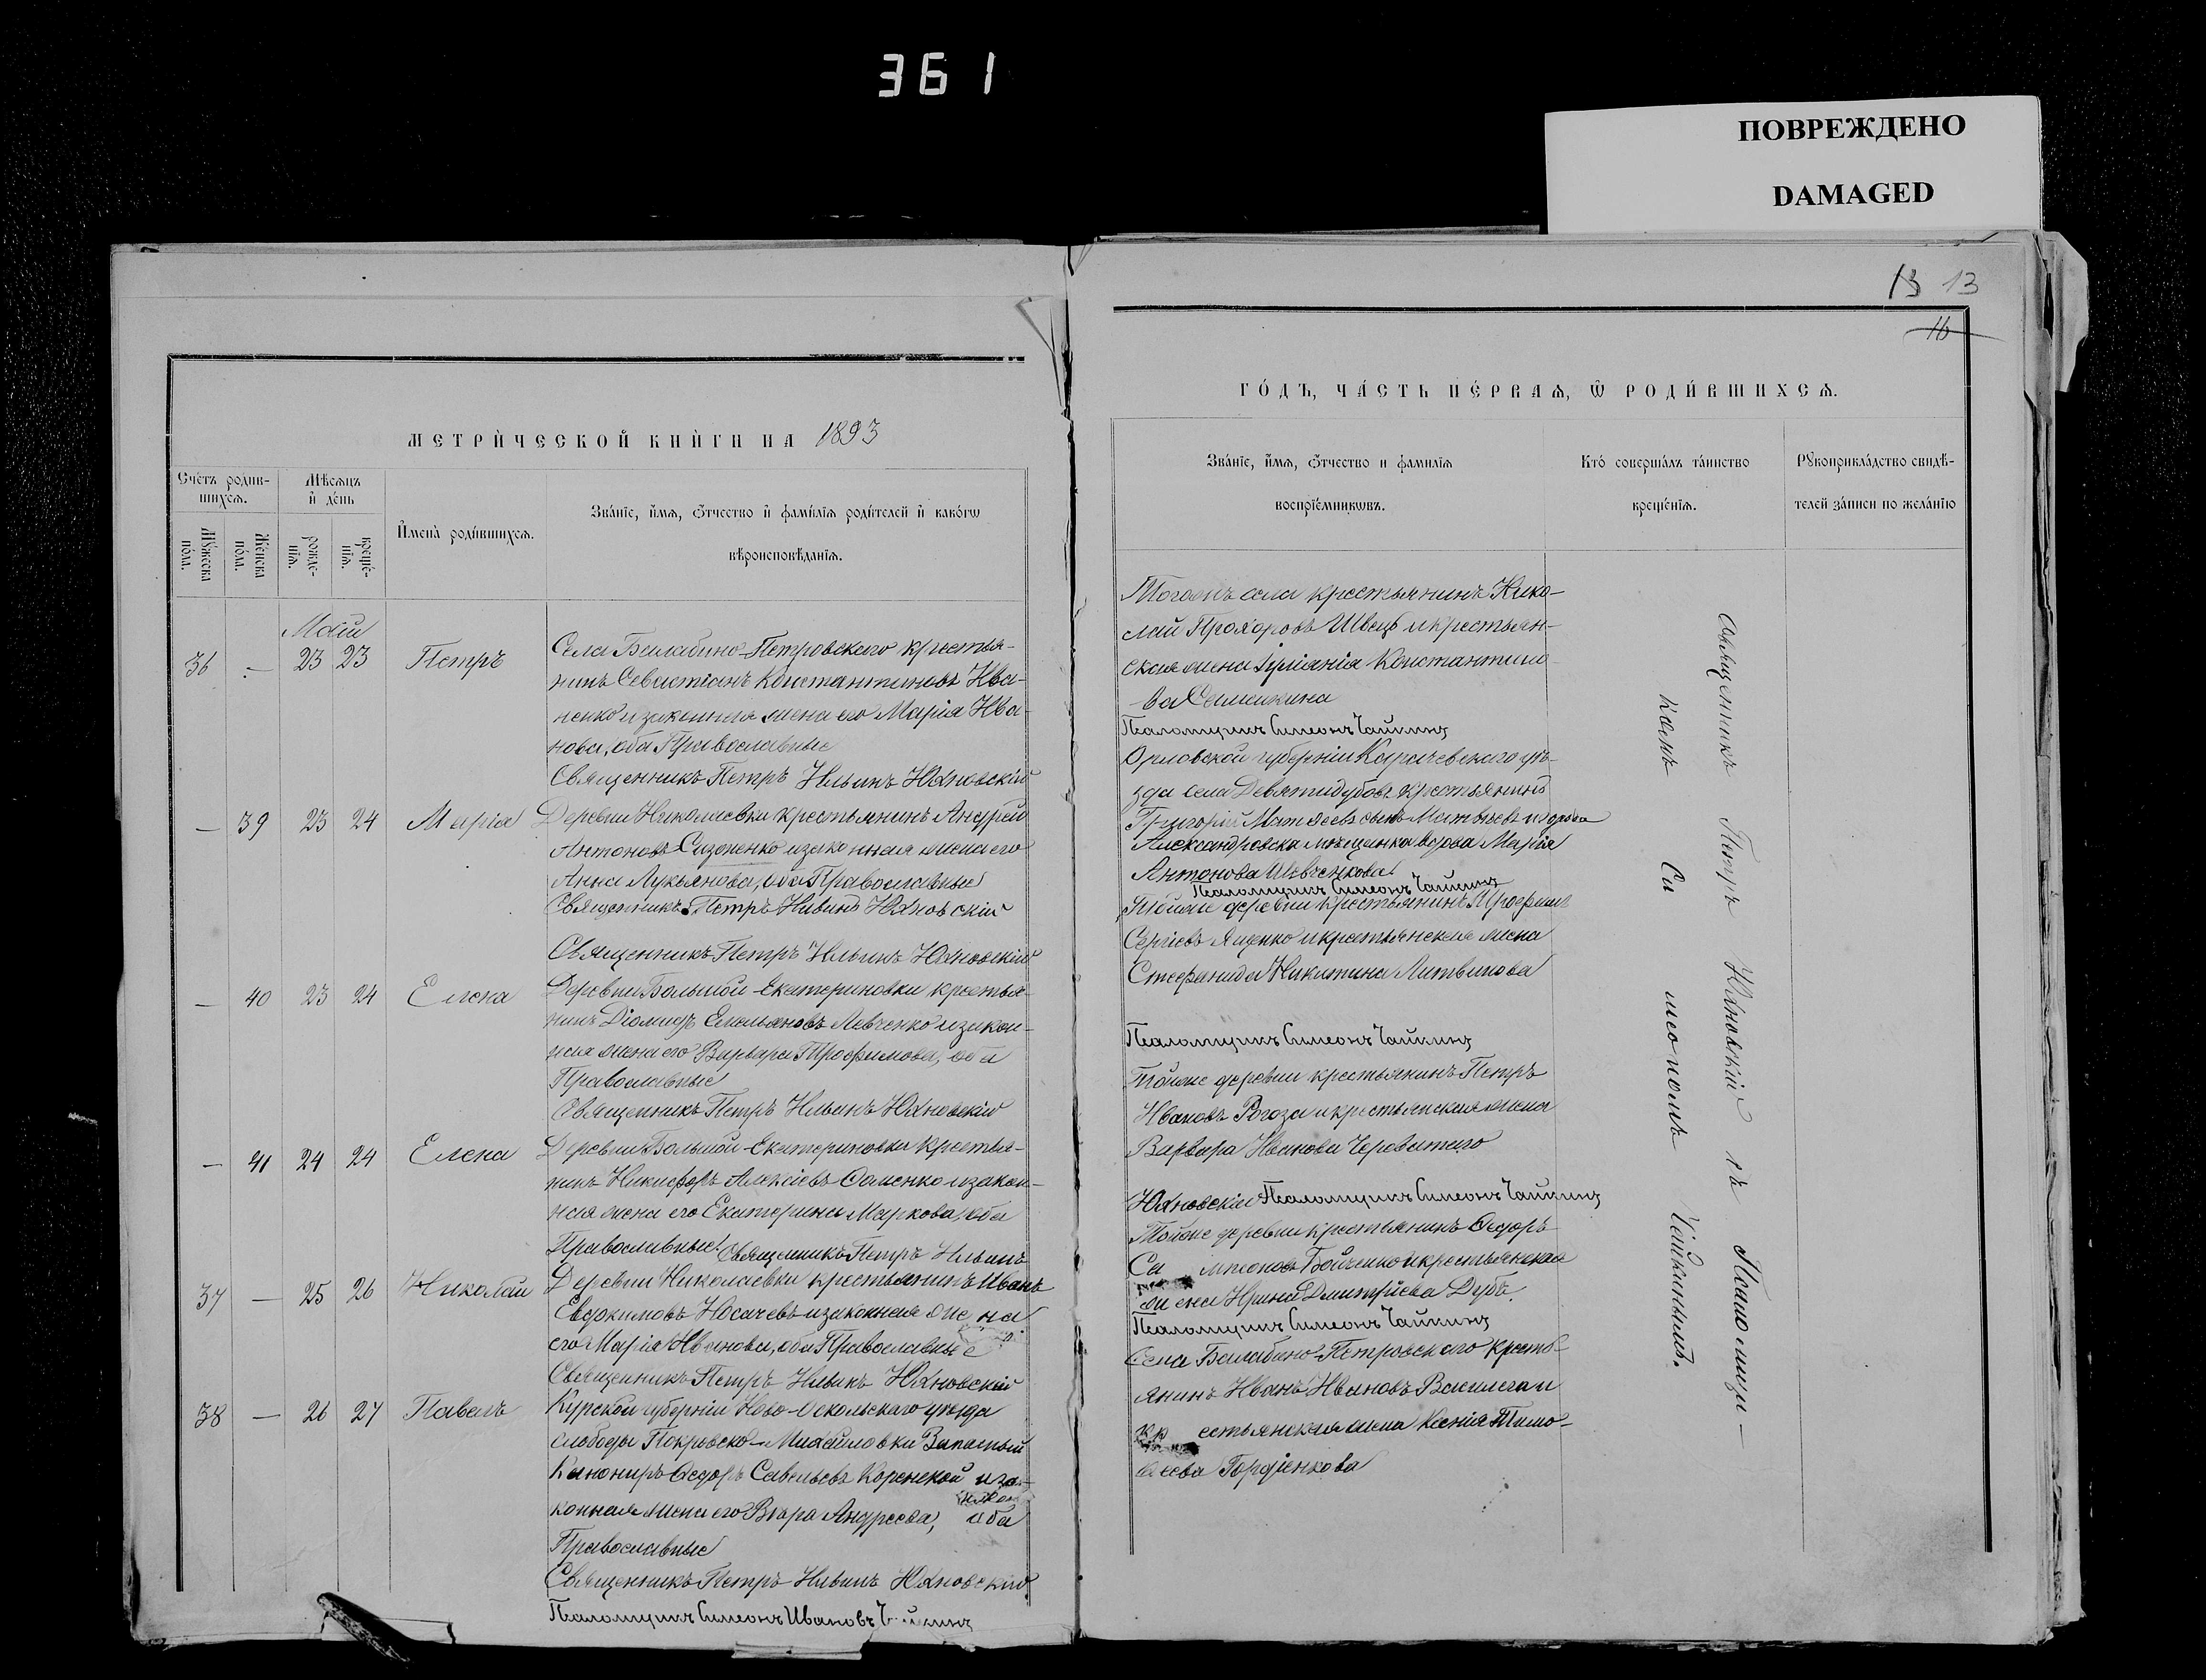 361
ПОВРЕЖДЕНО
DAMAGED
13 13
16
МЕТРИ́ЧЕСКОЙ КНИ́ГИ НА 1893
Сче́тъ роди́в-
шихсѧ.
Мѣ́сѧцъ
и҆ де́нь
Му́жеска
по́ла.
Же́нска
по́ла.
рожде-
нїѧ.
креще́-
нїѧ.
И҆мена̀ роди́вшихсѧ.
Зва́нїе, и҆́мѧ, ѻ҆́тчество и҆ фами́лїѧ роди́телей и҆ како́гѡ
вѣроисповѣ́данїѧ.
Май
36 — 23 23 Петръ
Села Балабино-Петровского крестья-
нинъ Севастіанъ Константиновъ Ива-
ненко и законная жена его Марія Ива-
нова, оба Православные
Священникъ Петръ Ильинъ Юхновскій
— 39 23 24 Марія
Деревни Николаевки крестьянинъ Андрей
Антоновъ Сизоненко и законная жена его
Анна Лукьянова, оба Православные
Священникъ Петръ Ильинъ Юхновскій
Священникъ Петръ Ильинъ Юхновскій
— 40 23 24 Елена
Деревни Большой-Екатериновки крестья-
нинъ Діомидъ Емельяновъ Левченко и закон-
ная жена его Варвара Трофимова, оба
Православные
Священникъ Петръ Ильинъ Юхновскій
— 41 24 24 Елена
Деревни Большой-Екатериновки крестья-
нинъ Никифоръ Алексіевъ Оменко и закон-
ная жена его Екатерина Маркова, оба
Православные Священникъ Петръ Ильинъ
37 — 25 26 Николай
Деревни Николаевки крестьянинъ Иванъ
Евдокимовъ Носачевъ и законная жена
его Марія Иванова, оба Православные
Священникъ Петръ Ильинъ Юхновскій
38 — 26 27 Павелъ
Курской губерніи Ново-Оскольскаго уѣзда
слободы Покровско-Михайловки Запасный
Канониръ Ѳедоръ Савельевъ Коренской и за-
конная жена его Вѣра Андреева, оба
Православные
Священникъ Петръ Ильинъ Юхновскій
Псаломщикъ Симеонъ Ивановъ Чайкинъ
ГО́ДЪ, ЧА́СТЬ ПЕ́РВАѦ, Ѽ РОДИ́ВШИХСѦ.
Зва́нїе, и҆́мѧ, ѻ҆́тчество и фами́лїѧ
воспрїе́мникѡвъ.
Кто̀ соверша́лъ та́инство
креще́нїѧ.
Рꙋкоприкла́дство свидѣ́-
телей за́писи по жела́нїю
Тогожъ села крестьянинъ Нико-
лай Прохоровъ Швецъ и крестьян-
ская жена Іуліанія Константино-
ва Самыкина
Псаломщикъ Симеонъ Чайкинъ
Орловской губерніи Карачевскаго уѣ-
зда села Девятидубовъ крестьянинъ
Григорій Матвеевъ Матвеевъ и города
Александровска мѣщанка вдова Марія
Антонова Шевченкова
Псаломщикъ Симеонъ Чайкинъ
Тойже деревни крестьянинъ Трофимъ
Сергіевъ Яценко и крестьянская жена
Стефанида Никитина Литвинова
Псаломщикъ Симеонъ Чайкинъ
Тойже деревни крестьянинъ Петръ
Ивановъ Рогоза и крестьянская жена
Варвара Иванова Череватаго
Юхновскій Псаломщикъ Симеонъ Чайкинъ
Тойже деревни крестьянинъ Ѳедоръ
Симеоновъ Бойченко и крестьянская
жена Ирина Дмитріева Дубъ
Псаломщикъ Симеонъ Чайкинъ
Села Балабино-Петровскаго крестьь-
янинъ Иванъ Ивановъ Василега и
крестьянская жена Ксенія Тимо-
ѳеева Гордіенкова
Священникъ Петръ Юхновскій съ Псаломщи-
комъ Симеономъ Чайкинымъ.